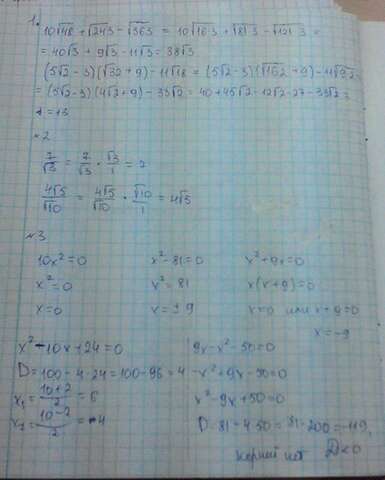 1. 10√48 + √243 − √363 = 10√16·3 + √81·3 − √121·3 =
= 40√3 + 9√3 − 11√3 = 38√3
(5√2 − 3)(√32 + 9) − 11√18 = (5√2 − 3)(√16·2 + 9) − 11√9·2 =
= (5√2 − 3)(4√2 + 9) − 33√2 = 40 + 45√2 − 12√2 − 27 − 33√2 =
= 13
№2
7/√3 = 7/√3 · √3/1 = 7
4√5/√10 = 4√5/√10 · √10/1 = 4√5
№3
10x² = 0 x² − 81 = 0 x² + 9x = 0
x² = 0 x² = 81 x(x + 9) = 0
x = 0 x = ± 9 x = 0 или x + 9 = 0
x = −9
x² − 10x + 24 = 0 9x − x² − 50 = 0
D = 100 − 4·24 = 100 − 96 = 4 −x² + 9x − 50 = 0
x₁ = 10+2/2 = 6 x² − 9x + 50 = 0
x₂ = 10−2/2 = 4 D = 81 − 4·50 = 81 − 200 = −119,
корней нет D<0